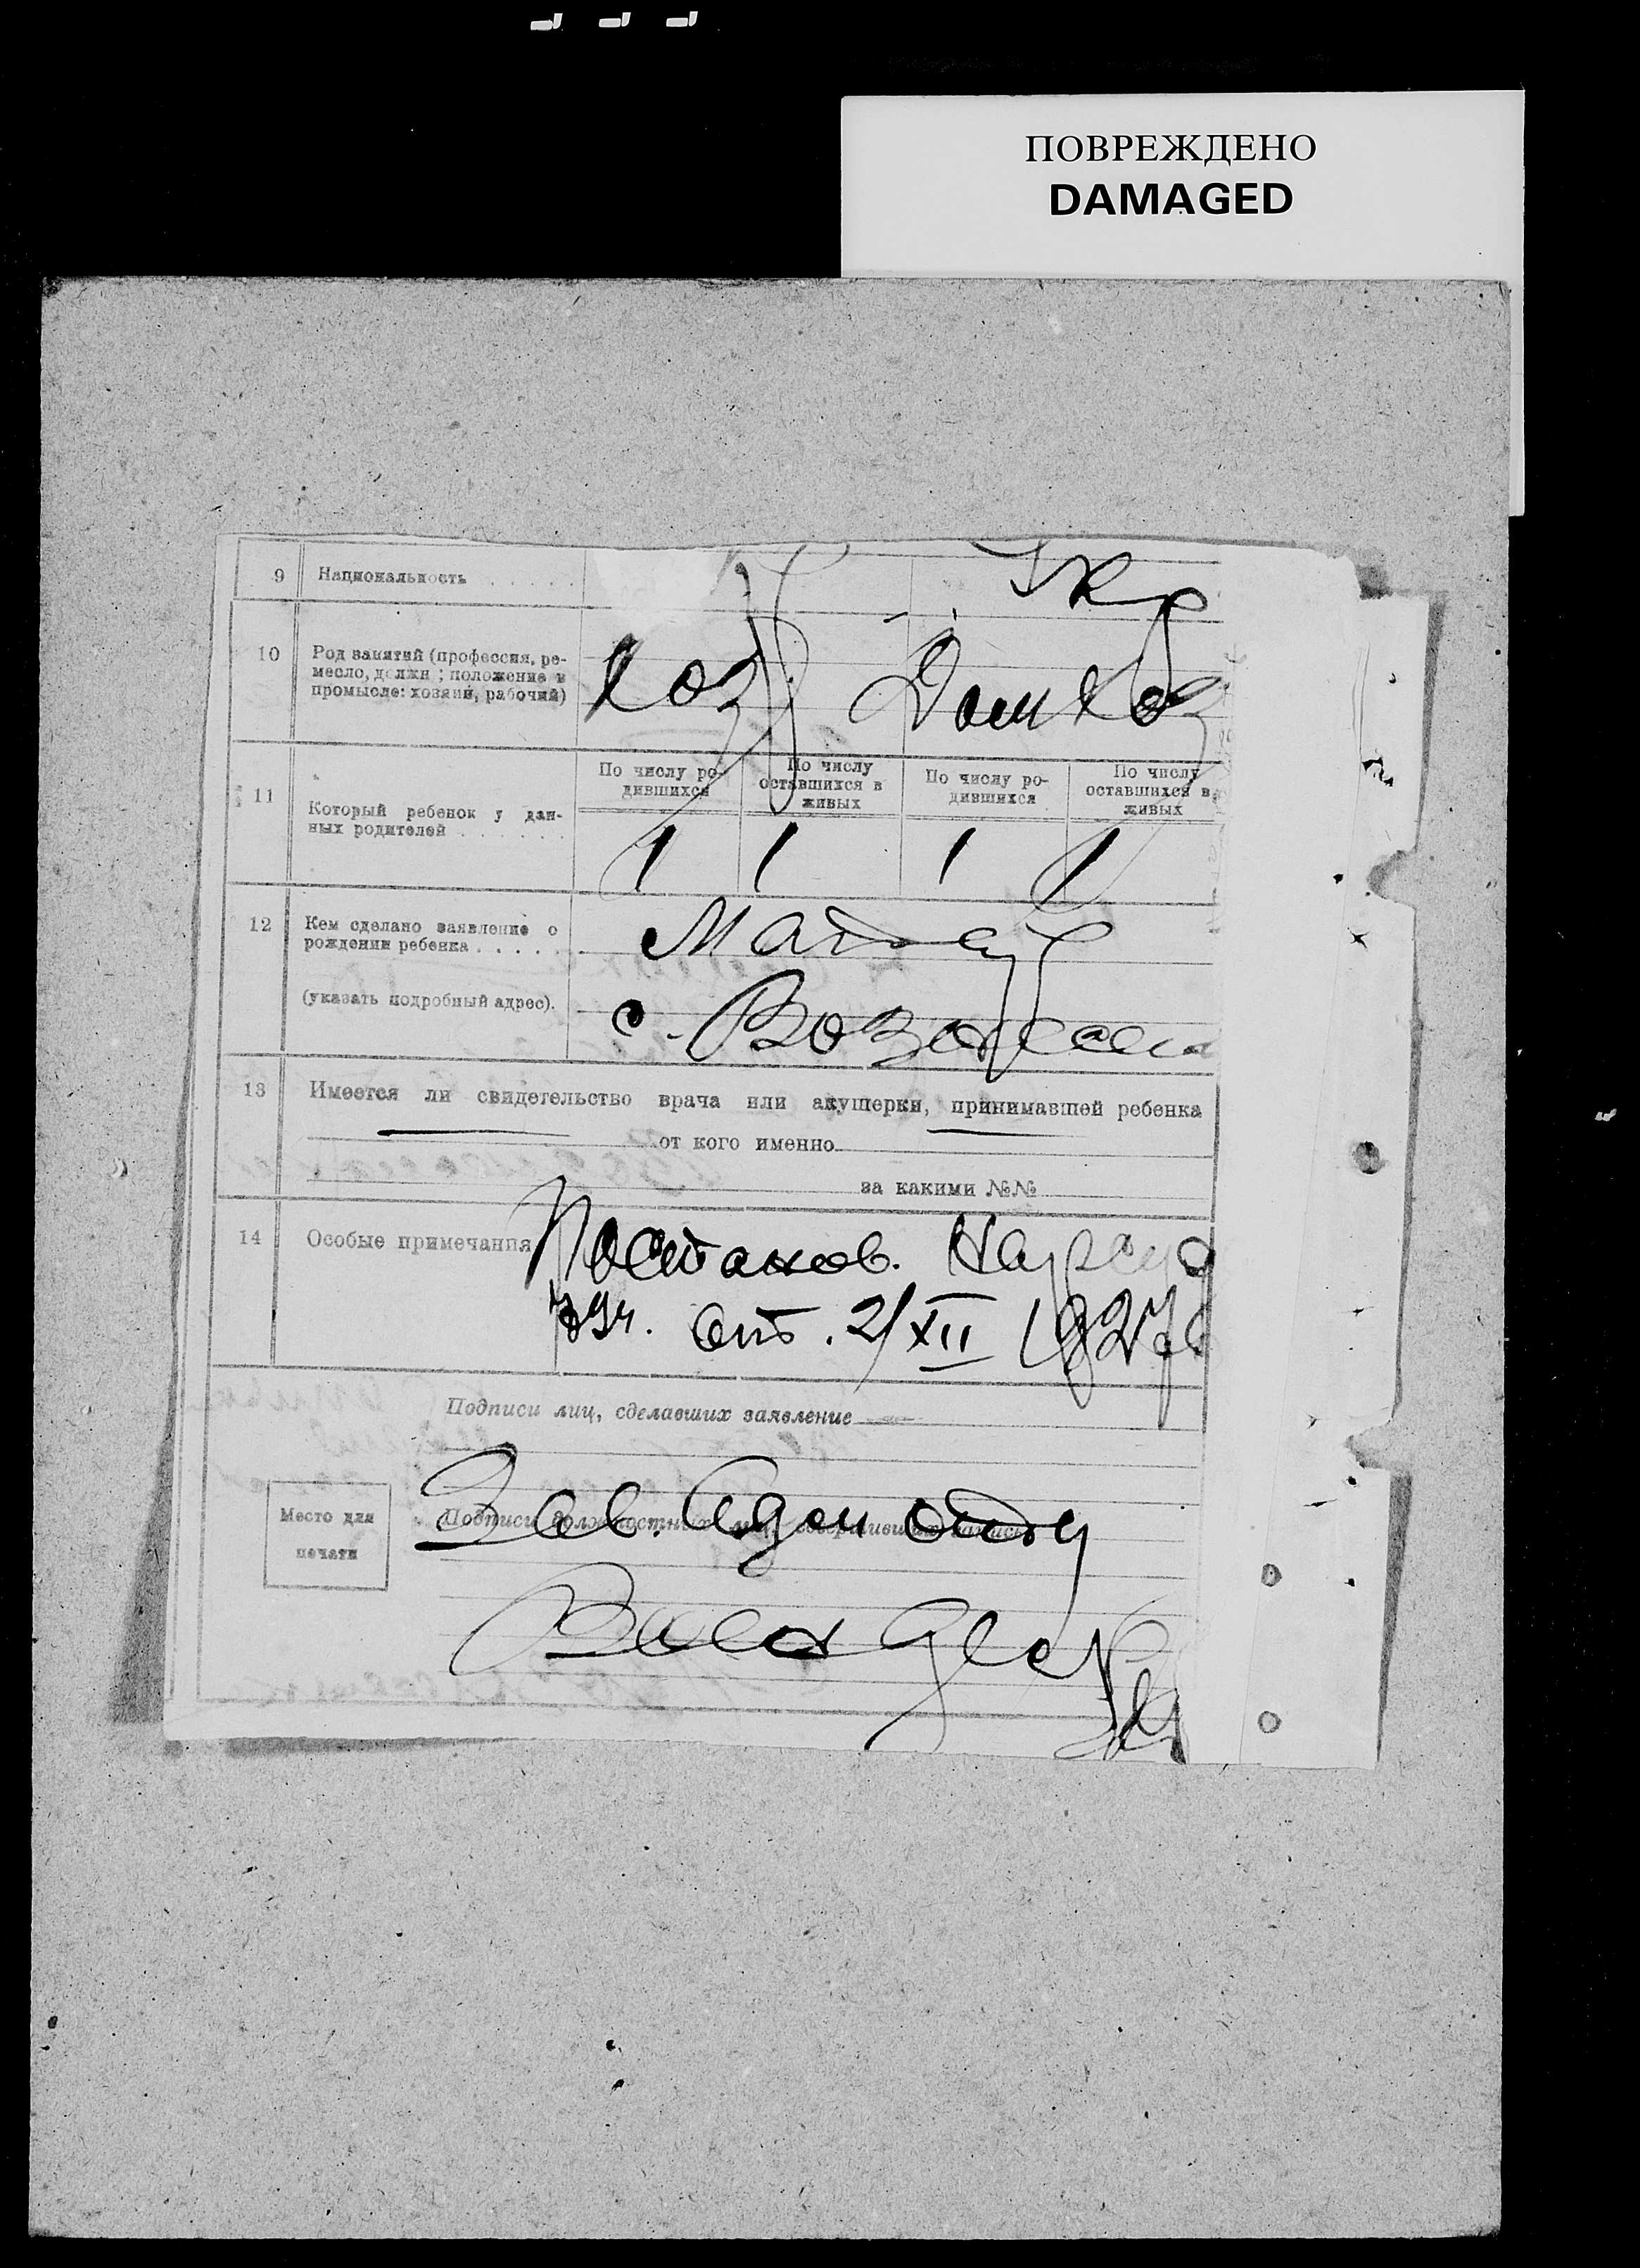 ПОВРЕЖДЕНО
DAMAGED
9 Национальность . . . . . Укр
10 Род занятий (профессия, ре-
месло, должн ; положение в
промысле: хозяин, рабочий)
Хоз Домхоз
11 Который ребенок у дан-
ных родителей . . . . . . .
По числу ро-
дившихся
По числу
оставшихся в
живых
По числу ро-
дившихся
По числу
оставшихся в
живых
1 1 1 1
12 Кем сделано заявление о
рождении ребенка . . . . . .
(указать подробный адрес).
Матерь
с. Вознесен
13 Имеется ли свидетельство врача или акушерки, принимавшей ребенка
от кого именно
за какими №№
14 Особые примечания
Постанов. Нарсуд
от. 2/XII 1927
Подписи лиц, сделавших заявление
Место для
печати
Подписи должностных лиц, совершивших запись
Зав.